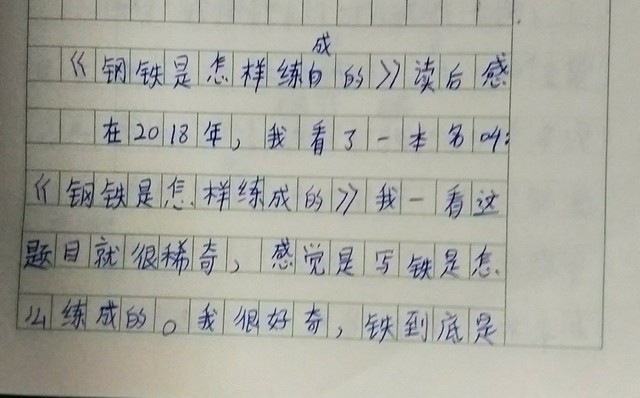 《钢铁是怎样练成的》读后感
在2018年，我看了一本名叫：
《钢铁是怎样练成的》我一看这
题目就很稀奇，感觉是写铁是怎
么练成的。我很好奇，铁到底是